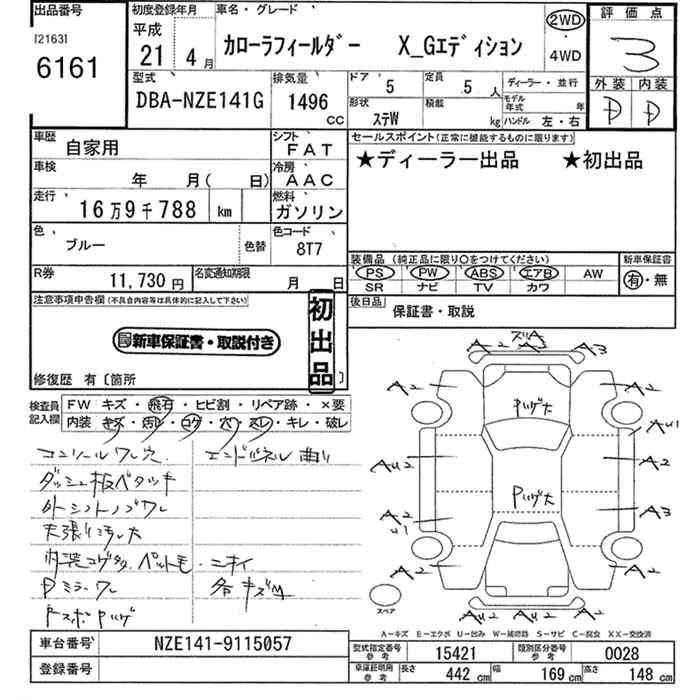 出品番号
[2163]
6161
初度登録年月
平成
21 4 月
車名・グレード
カローラフィールダー X_Gエディション
2WD
・
4WD
評価点
3
外装 内装
D D
型式
DBA-NZE141G
排気量
1496 CC
ドア 5
定員 5 人
ディーラー・並行
形状 ステW
積載 kg
モデル年式 年
ハンドル 左・右
車歴 自家用
シフト FAT
車検 年 月( 日)
冷房 AAC
走行 16万9千788 km
燃料 ガソリン
色 ブルー 色替
色コード 8T7
R券 11,730円
名変通知期限 月 日
セールスポイント(正常に機能するものに限ります)
★ディーラー出品 ★初出品
装備品(純正品に限り○をつけてください)
PS PW ABS エアB AW
SR ナビ TV カワ
新車保証書
有・無
後日品 保証書・取説
注意事項申告欄(不具合内容等は具体的に記入して下さい)
新車保証書・取説付き
初出品
修復歴 有〔箇所 〕
検査員記入欄
FW キズ・飛石・ヒビ割・リペア跡・×要
内装 キズ・汚レ・コゲ・穴・スレ・キレ・破レ
コンソールワレ穴 エンドパネル曲り
ダッシュ板ベタツキ
外シフトノブワレ
天張り汚レ大
内装コゲ ペット毛・ニオイ
Dミラーワレ 各キズ
A2 A3 A3
A2 A2
Pハゲ大
AU1
AU2 A2
Pハゲ大
A2 A3
U1
A2 A2
AU2 AU2 A2
スペア
A-キズ E-エクボ U-凹み W-補修跡 S-サビ C-腐食 XX-交換済
車台番号 NZE141-9115057
登録番号
型式指定番号 参考 15421
類別区分番号 参考 0028
車庫証明用 参考 長さ 442 cm 幅 169 cm 高さ 148 cm